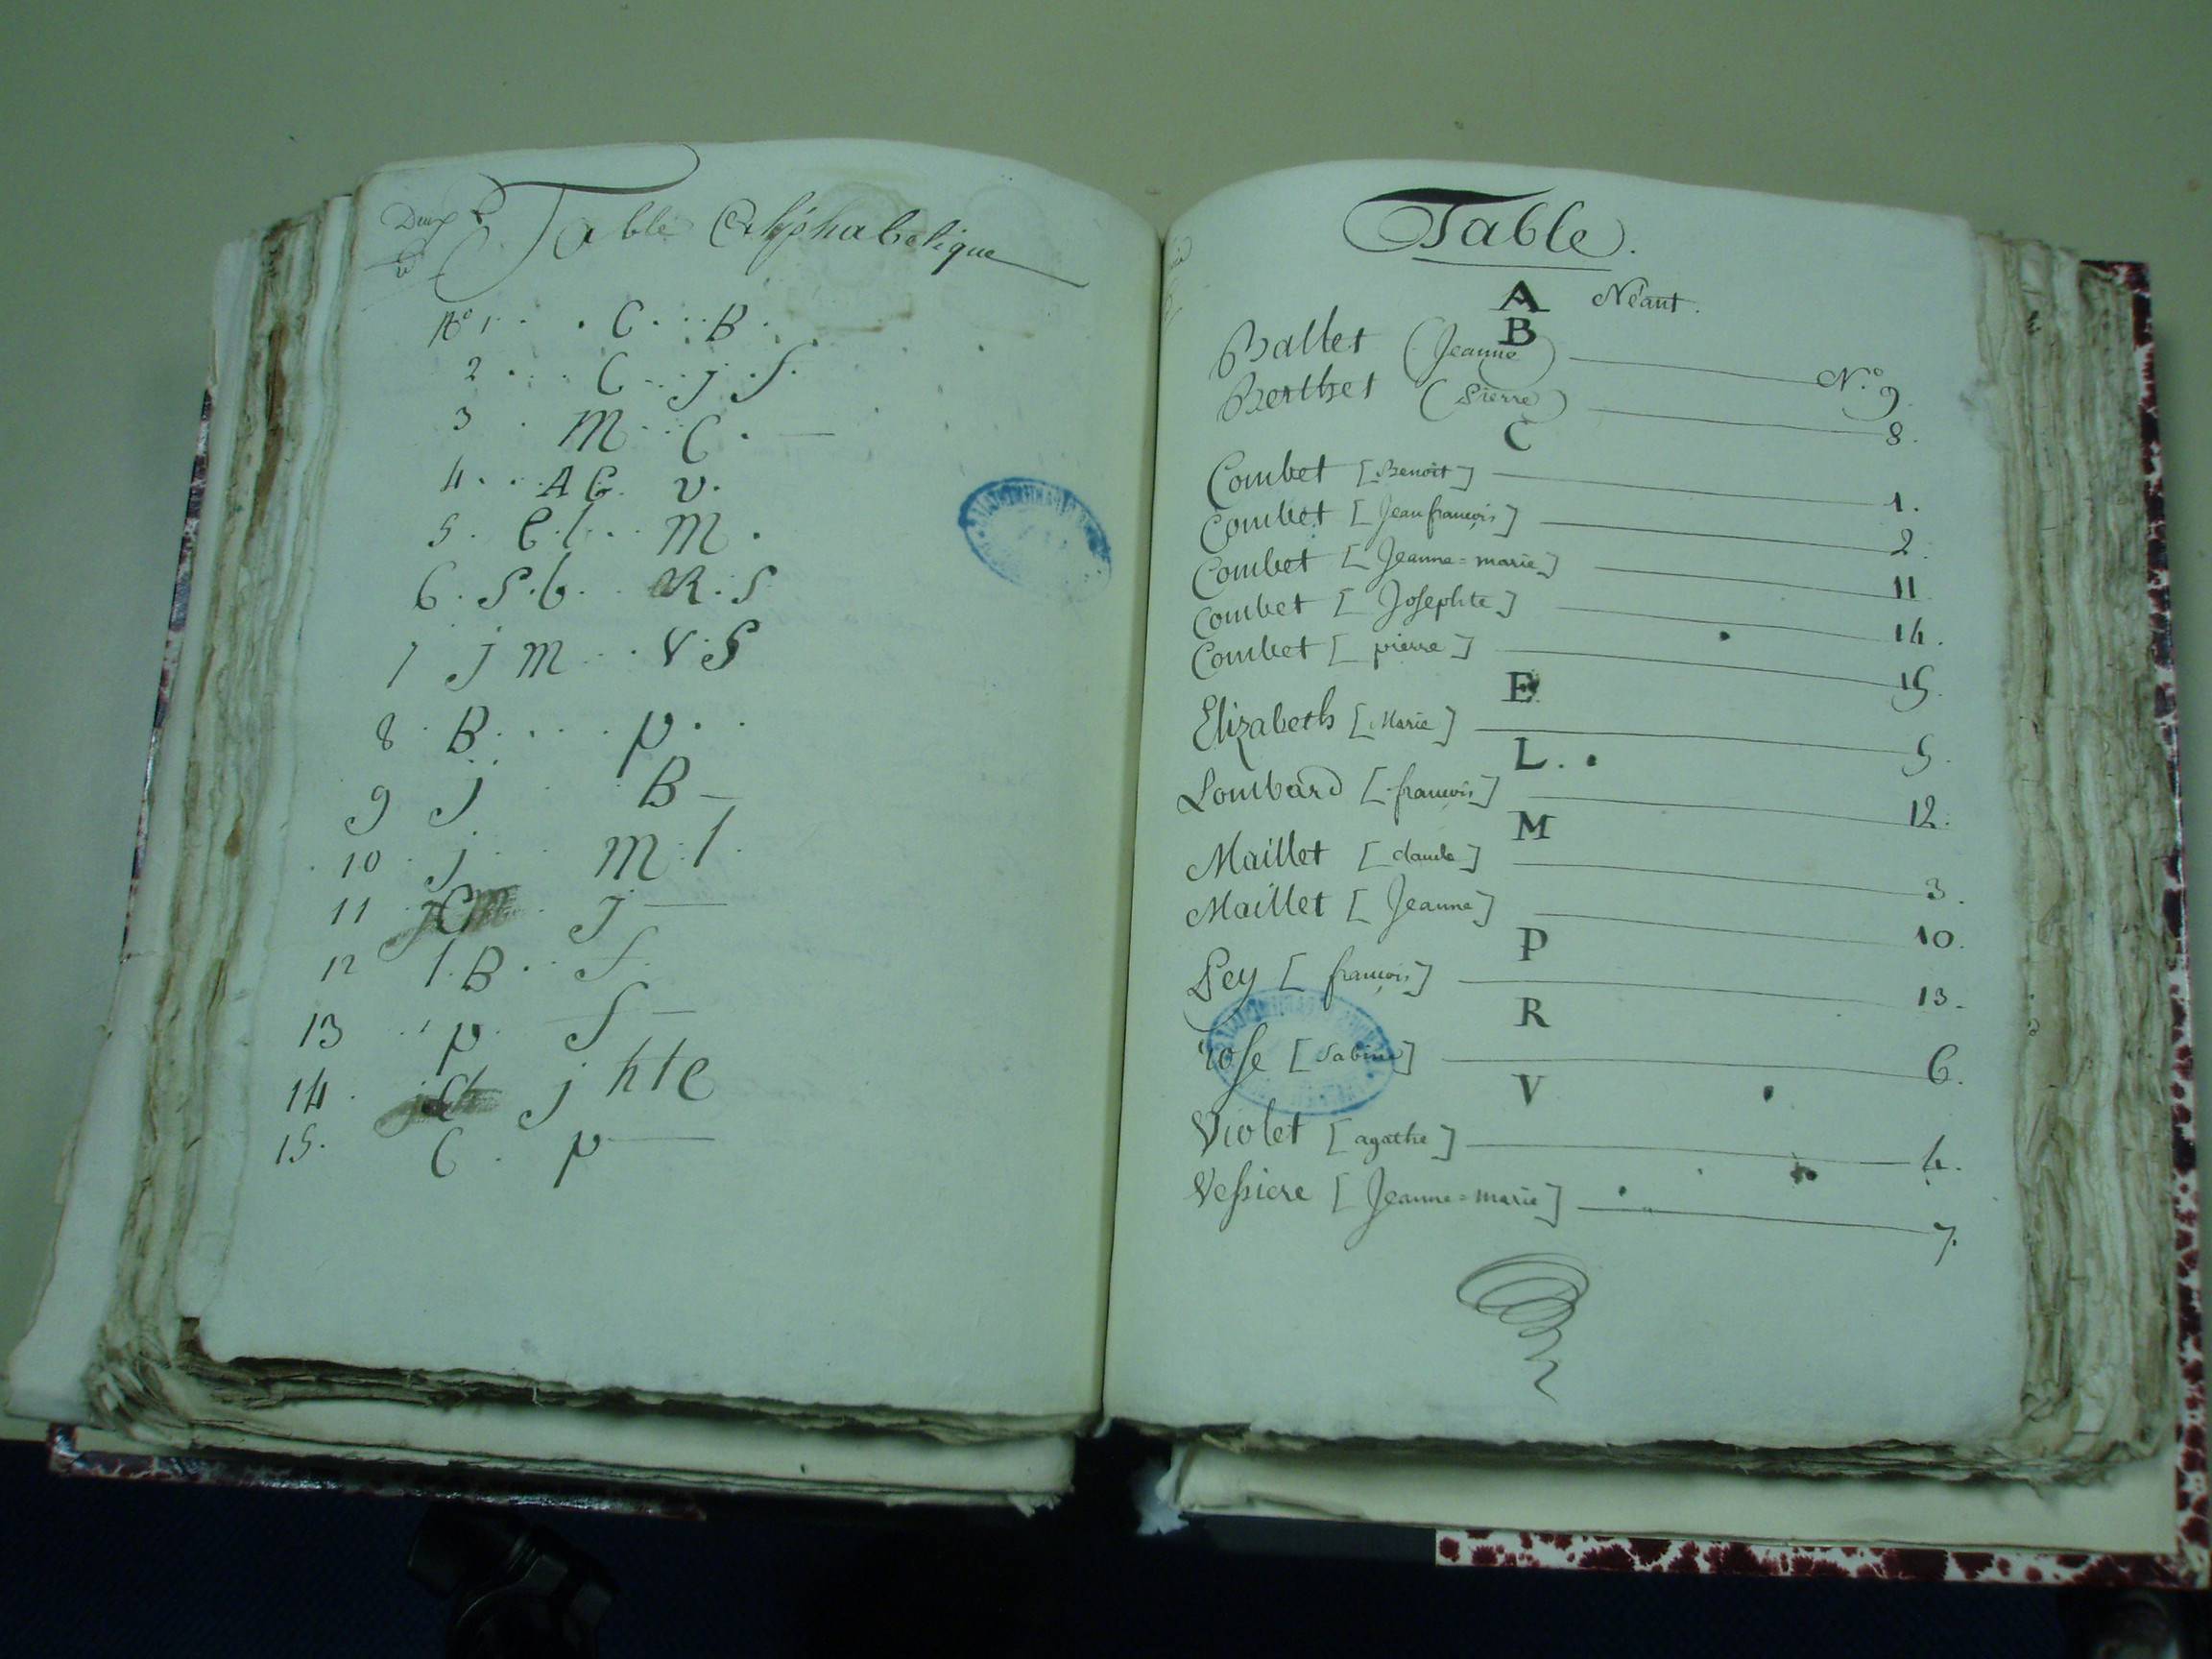 Table Alphabetique
N° 1 . . . C . . . B .
2 . . . C . . . j . S .
3 . M . . . C . —
4 . . . A G . v .
5 . E . l . . . M .
6 . S . b . . . R . S
7 j M . . . V . S
8 . B . . . . p . .
9 j . . B —
10 . j . . . M . l .
11 j C m . j —
12 l . B . . f .
13 . . p . S —
14 . j C j hte
15 . C . p —
Table .
A Néant .
B
Ballet ( Jeanne ) — N.° 9 .
Berthet ( Pierre ) — 8 .
C
Combet [ Benoit ] — 1 .
Combet [ Jean françois ] — 2 .
Combet [ Jeanne = marie ] — 11
Combet [ Josephte ] — 14 .
Combet [ pierre ] — 15 .
E
Elizabeth [ Marie ] — 5 .
L .
Lombard [ françois ] — 12 .
M
Maillet [ claude ] — 3 .
Maillet [ Jeanne ] — 10 .
P
Pey [ françois ] — 13 .
R
rose [ Sabine ] — 6 .
V
Violet [ agathe ] — 4 .
Vessiere [ Jeanne = marie ] — 7 .